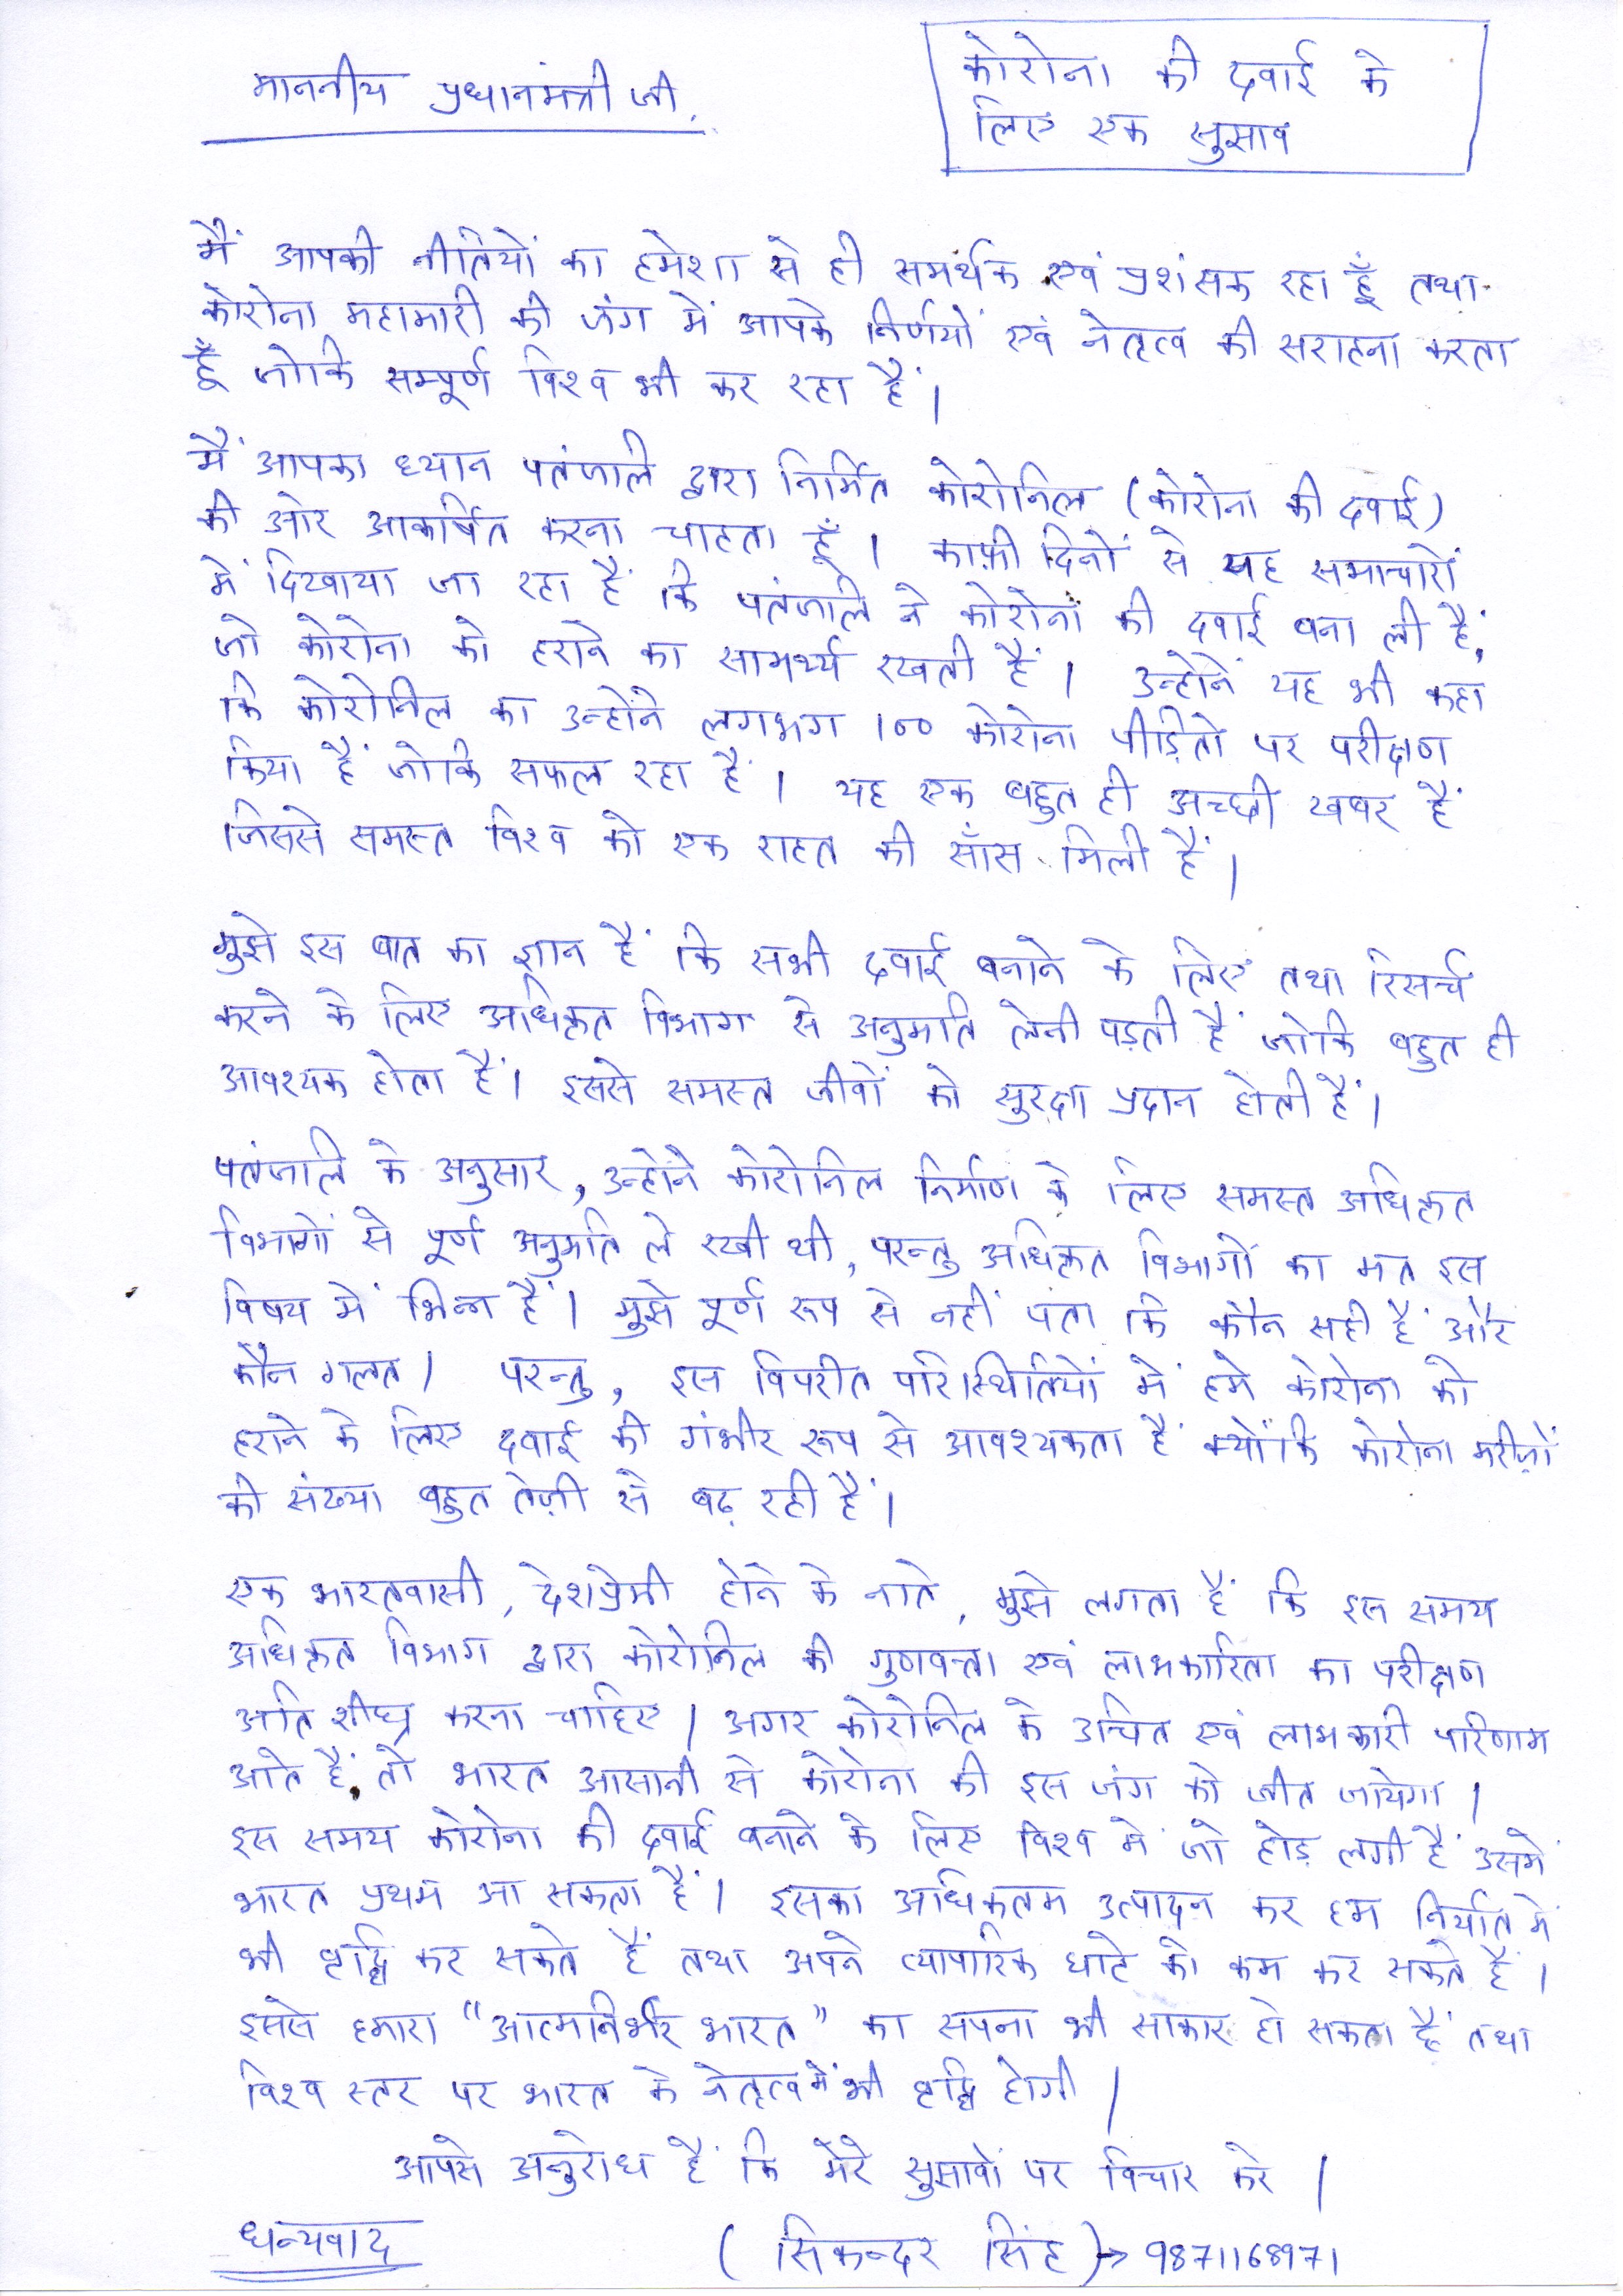 माननीय प्रधानमंत्री जी,
कोरोना की दवाई के
लिए एक सुझाव
मैं आपकी नीतियों का हमेशा से ही समर्थक एवं प्रशंसक रहा हूँ तथा
कोरोना महामारी की जंग में आपके निर्णयों एवं नेतृत्व की सराहना करता
हूँ जोकि सम्पूर्ण विश्व भी कर रहा हैं।
मैं आपका ध्यान पतंजलि द्वारा निर्मित कोरोनिल (कोरोना की दवाई)
की ओर आकर्षित करना चाहता हूँ। काफ़ी दिनों से यह समाचारों
में दिखाया जा रहा हैं कि पतंजलि ने कोरोना की दवाई बना ली हैं,
जो कोरोना को हराने का सामर्थ्य रखती हैं। उन्होनें यह भी कहा
कि कोरोनिल का उन्होंने लगभग 100 कोरोना पीड़ितो पर परीक्षण
किया हैं जोकि सफल रहा हैं। यह एक बहुत ही अच्छी खबर हैं
जिससे समस्त विश्व को एक राहत की साँस मिली हैं।
मुझे इस बात का ज्ञान हैं कि सभी दवाई बनाने के लिए तथा रिसर्च
करने के लिए अधिकृत विभाग से अनुमति लेनी पड़ती हैं जोकि बहुत ही
आवश्यक होता हैं। इससे समस्त जीवों को सुरक्षा प्रदान होती हैं।
पतंजलि के अनुसार, उन्होने कोरोनिल निर्माण के लिए समस्त अधिकृत
विभागों से पूर्ण अनुमति ले रखी थी, परन्तु अधिकृत विभागों का मत इस
विषय में भिन्न हैं। मुझे पूर्ण रूप से नहीं पता कि कौन सही हैं और
कौन गलत। परन्तु, इस विपरीत परिस्थितियों में हमे कोरोना को
हराने के लिए दवाई की गंभीर रूप से आवश्यकता हैं क्योंकि कोरोना मरीज़ों
की संख्या बहुत तेज़ी से बढ़ रही हैं।
एक भारतवासी, देशप्रेमी होने के नाते, मुझे लगता हैं कि इस समय
अधिकृत विभाग द्वारा कोरोनिल की गुणवत्ता एवं लाभकारिता का परीक्षण
अति शीघ्र करना चाहिए। अगर कोरोनिल के उचित एवं लाभकारी परिणाम
आते हैं, तो भारत आसानी से कोरोना की इस जंग को जीत जायेगा।
इस समय कोरोना की दवाई बनाने के लिए विश्व में जो होड़ लगी हैं उसमें
भारत प्रथम आ सकता हैं। इसका अधिकतम उत्पादन कर हम निर्यात में
भी वृद्धि कर सकते हैं तथा अपने व्यापारिक घाटे को कम कर सकते हैं।
इससे हमारा "आत्मनिर्भर भारत" का सपना भी साकार हो सकता हैं तथा
विश्व स्तर पर भारत के नेतृत्व में भी वृद्धि होगी।
आपसे अनुरोध हैं कि मेरे सुझावों पर विचार करे।
धन्यवाद
(सिकन्दर सिंह)→ 9871168971